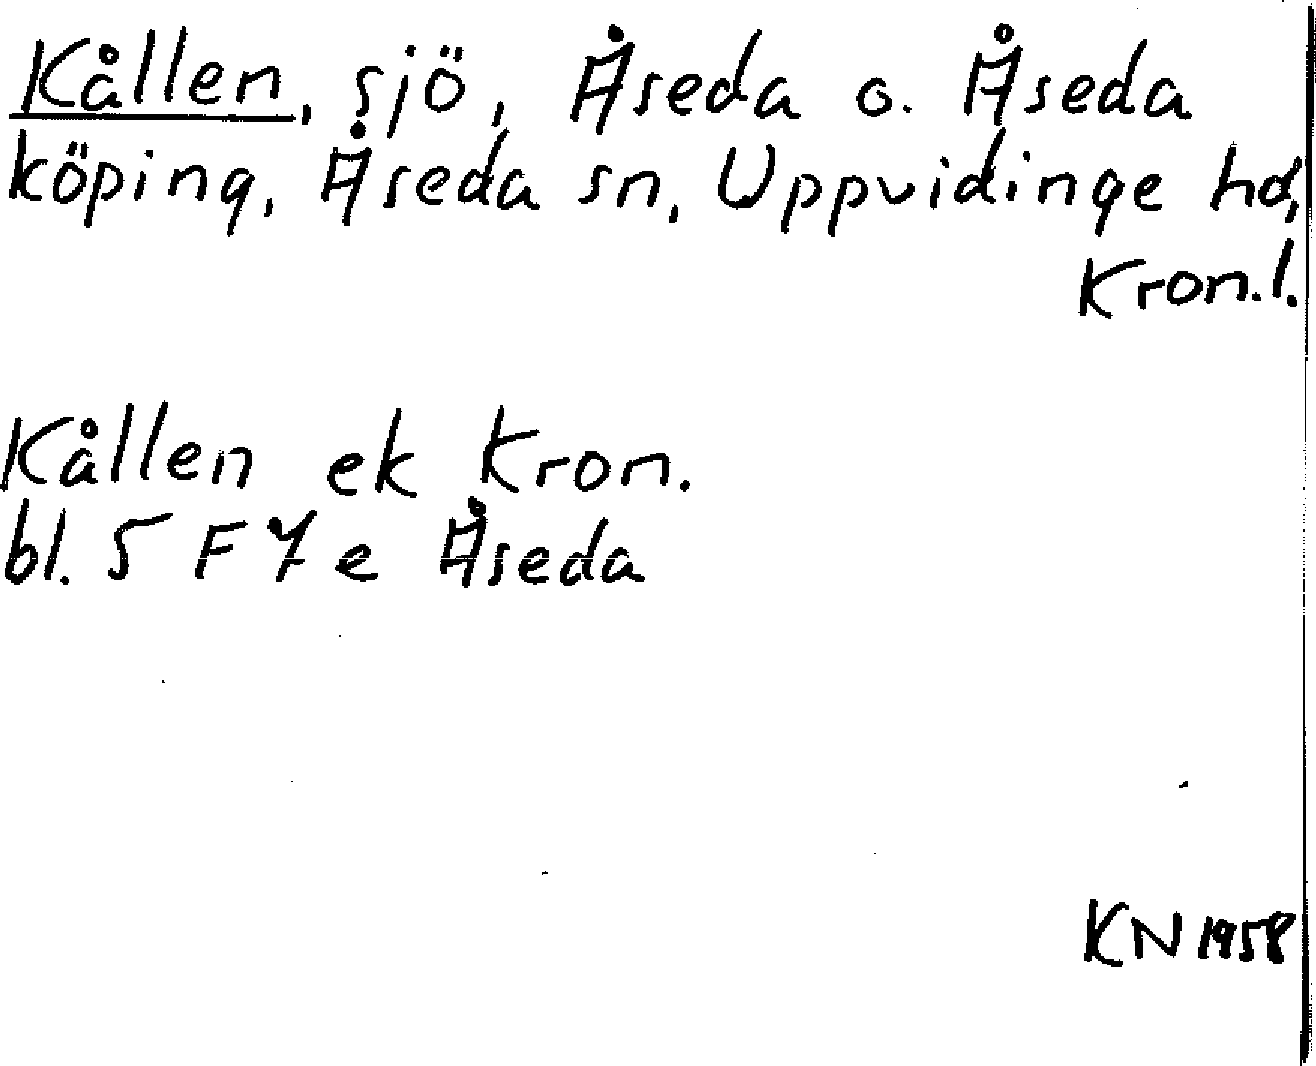 Kållen, sjö, Åseda o. Åseda
köping, Åseda sn, Uppvidinge hd,
Kron.l.
Kållen ek Kron.
bl. 5 F 7 e Åseda
KN 1958